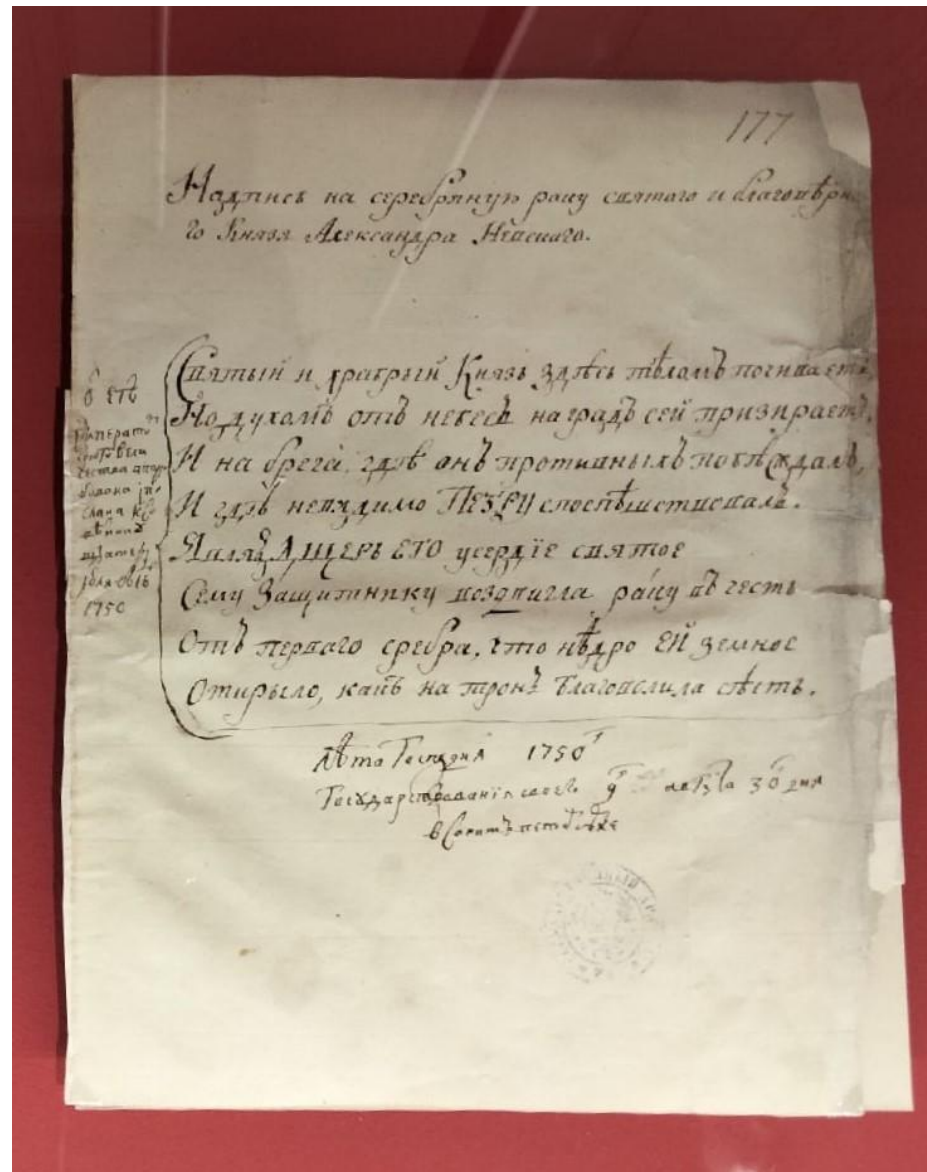 177
Надпись на серебряную раку святаго и благовѣрна
го Князя Александра Невскаго.
Святый и храбрый Князь здѣсь тѣломъ почиваетъ,
Но духомъ отъ небесъ на градъ сей призираетъ,
И на брега, гдѣ онъ противныхъ побѣждалъ,
И гдѣ невидимо ПЕТРУ споспѣшствовалъ.
Являя ДЩЕРЬ ЕГО усердіе святое
Сему Защитнику воздвигла раку въ честь
Отъ перваго сребра, что нѣдро ЕЙ земное
Открыло, какъ на тронъ благоволила сѣсть.
1750
Лѣта Господня 1750
Государствования своего 9 30 дня